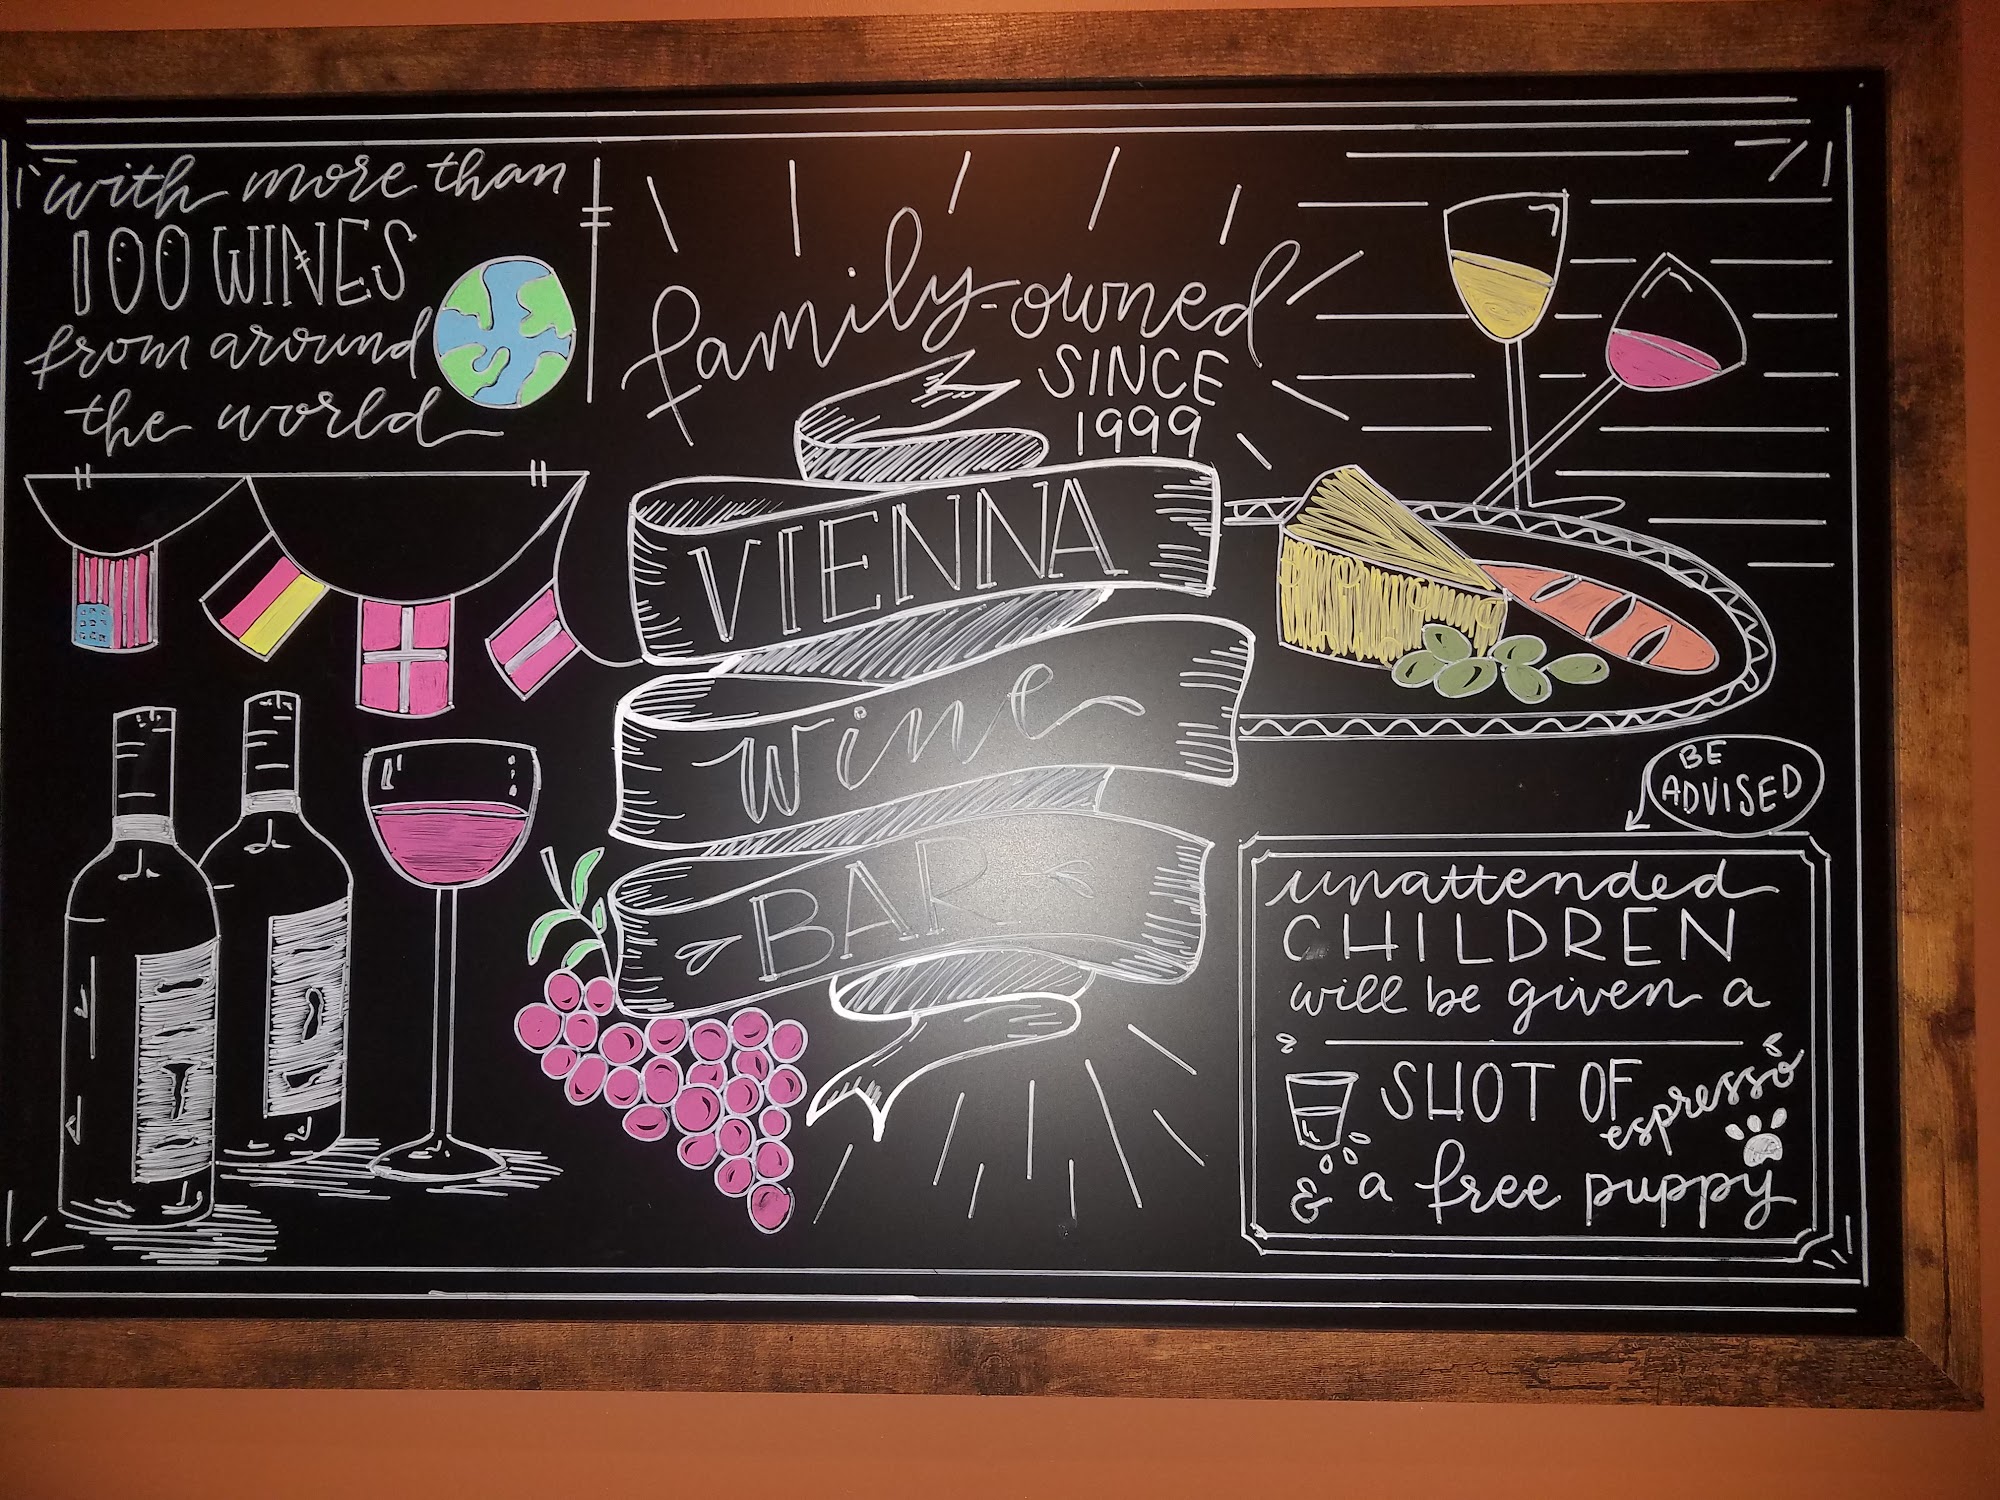 with more than
100 WINES
from around
the world
family-owned
SINCE
1999
VIENNA
wine
BAR
BE
ADVISED
unattended
CHILDREN
will be given a
SHOT OF espresso
& a free puppy